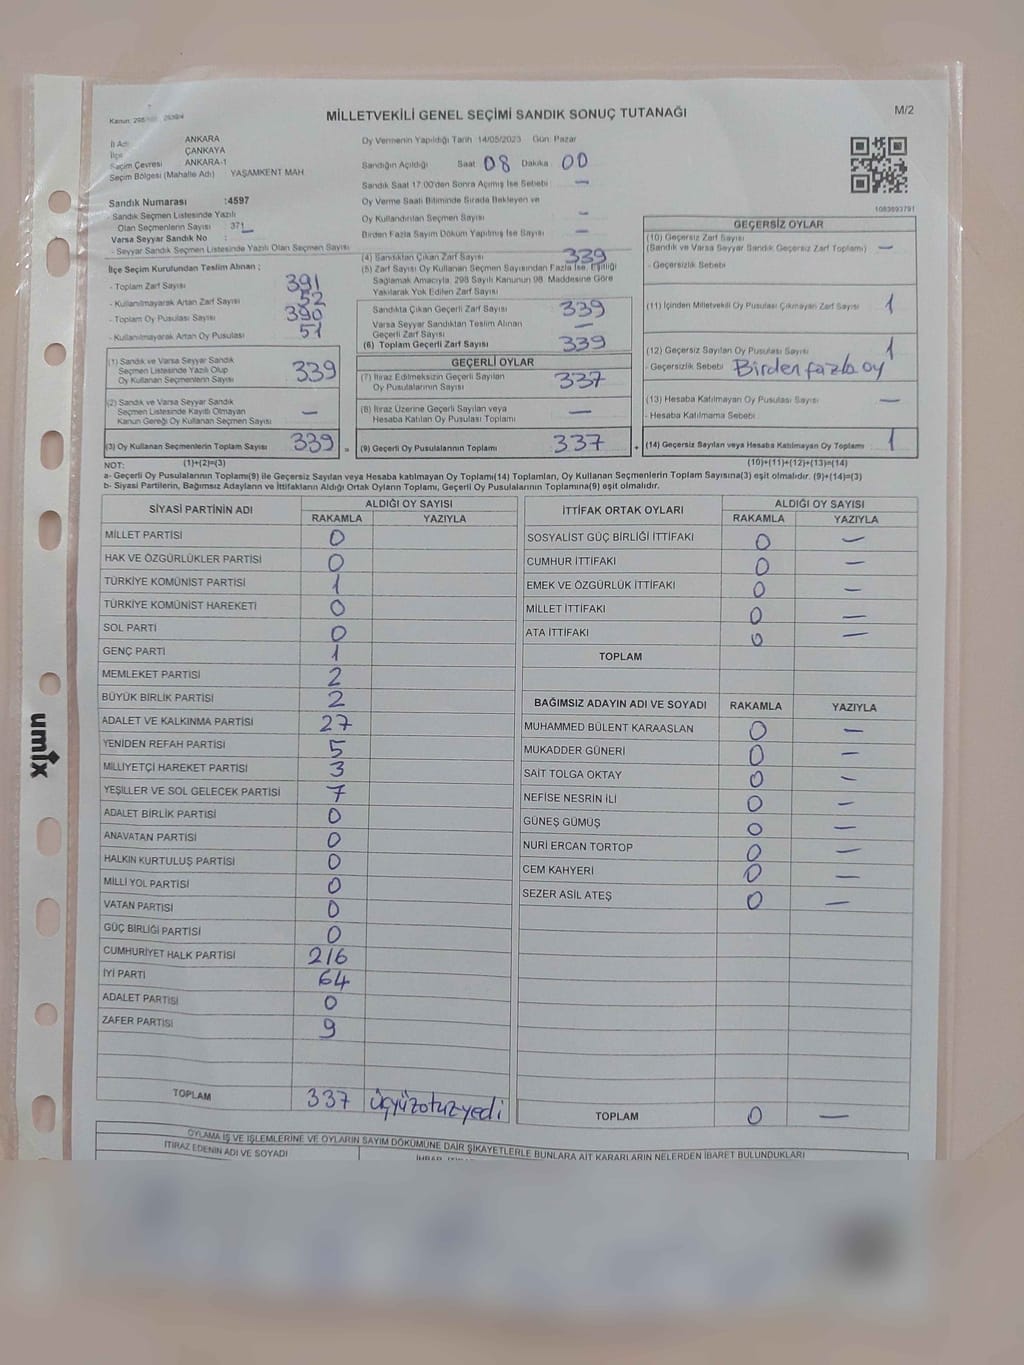 MİLLETVEKİLİ GENEL SEÇİMİ SANDIK SONUÇ TUTANAĞI
M/2
Kanun: 298
İl Adı ANKARA
İlçe ÇANKAYA
Seçim Çevresi ANKARA-1
Seçim Bölgesi (Mahalle Adı) : YAŞAMKENT MAH
Oy Vermenin Yapıldığı Tarih 14/05/2023 Gün: Pazar
Sandığın Açıldığı Saat 08 Dakika 00
Sandık Saat 17:00'den Sonra Açılmış İse Sebebi —
Oy Verme Saati Bitiminde Sırada Bekleyen ve
Oy Kullandırılan Seçmen Sayısı —
Birden Fazla Sayım Döküm Yapılmış İse Sayısı —
1083693791
Sandık Numarası :4597
Sandık Seçmen Listesinde Yazılı
Olan Seçmenlerin Sayısı : 371
Varsa Seyyar Sandık No :
- Seyyar Sandık Seçmen Listesinde Yazılı Olan Seçmen Sayısı
İlçe Seçim Kurulundan Teslim Alınan ;
- Toplam Zarf Sayısı 391
- Kullanılmayarak Artan Zarf Sayısı 52
- Toplam Oy Pusulası Sayısı 390
- Kullanılmayarak Artan Oy Pusulası 51
(1) Sandık ve Varsa Seyyar Sandık
Seçmen Listesinde Yazılı Olup
Oy Kullanan Seçmenlerin Sayısı 339
(2) Sandık ve Varsa Seyyar Sandık
Seçmen Listesinde Kayıtlı Olmayan
Kanun Gereği Oy Kullanan Seçmen Sayısı —
(3) Oy Kullanan Seçmenlerin Toplam Sayısı 339 =
(4) Sandıktan Çıkan Zarf Sayısı 339
(5) Zarf Sayısı Oy Kullanan Seçmen Sayısından Fazla İse, Eşitliği
Sağlamak Amacıyla, 298 Sayılı Kanunun 98. Maddesine Göre
Yakılarak Yok Edilen Zarf Sayısı
Sandıkta Çıkan Geçerli Zarf Sayısı 339
Varsa Seyyar Sandıktan Teslim Alınan
Geçerli Zarf Sayısı —
(6) Toplam Geçerli Zarf Sayısı 339
GEÇERLİ OYLAR
(7) İtiraz Edilmeksizin Geçerli Sayılan
Oy Pusulalarının Sayısı 337
(8) İtiraz Üzerine Geçerli Sayılan veya
Hesaba Katılan Oy Pusulası Toplamı —
(9) Geçerli Oy Pusulalarının Toplamı 337 +
GEÇERSİZ OYLAR
(10) Geçersiz Zarf Sayısı
(Sandık ve Varsa Seyyar Sandık Geçersiz Zarf Toplamı) —
- Geçersizlik Sebebi
(11) İçinden Milletvekili Oy Pusulası Çıkmayan Zarf Sayısı 1
(12) Geçersiz Sayılan Oy Pusulası Sayısı 1
- Geçersizlik Sebebi Birden fazla oy
(13) Hesaba Katılmayan Oy Pusulası Sayısı —
- Hesaba Katılmama Sebebi
(14) Geçersiz Sayılan veya Hesaba Katılmayan Oy Toplamı 1
NOT: (1)+(2)=(3) (10)+(11)+(12)+(13)=(14)
a- Geçerli Oy Pusulalarının Toplamı(9) ile Geçersiz Sayılan veya Hesaba katılmayan Oy Toplamı(14) Toplamları, Oy Kullanan Seçmenlerin Toplam Sayısına(3) eşit olmalıdır. (9)+(14)=(3)
b- Siyasi Partilerin, Bağımsız Adayların ve İttifakların Aldığı Ortak Oyların Toplamı, Geçerli Oy Pusulalarının Toplamına(9) eşit olmalıdır.
SİYASİ PARTİNİN ADI ALDIĞI OY SAYISI
RAKAMLA YAZIYLA
MİLLET PARTİSİ 0
HAK VE ÖZGÜRLÜKLER PARTİSİ 0
TÜRKİYE KOMÜNİST PARTİSİ 1
TÜRKİYE KOMÜNİST HAREKETİ 0
SOL PARTİ 0
GENÇ PARTİ 1
MEMLEKET PARTİSİ 2
BÜYÜK BİRLİK PARTİSİ 2
ADALET VE KALKINMA PARTİSİ 27
YENİDEN REFAH PARTİSİ 5
MİLLİYETÇİ HAREKET PARTİSİ 3
YEŞİLLER VE SOL GELECEK PARTİSİ 7
ADALET BİRLİK PARTİSİ 0
ANAVATAN PARTİSİ 0
HALKIN KURTULUŞ PARTİSİ 0
MİLLİ YOL PARTİSİ 0
VATAN PARTİSİ 0
GÜÇ BİRLİĞİ PARTİSİ 0
CUMHURİYET HALK PARTİSİ 216
İYİ PARTİ 64
ADALET PARTİSİ 0
ZAFER PARTİSİ 9
TOPLAM 337 üçyüzotuzyedi
İTTİFAK ORTAK OYLARI ALDIĞI OY SAYISI
RAKAMLA YAZIYLA
SOSYALİST GÜÇ BİRLİĞİ İTTİFAKI 0 —
CUMHUR İTTİFAKI 0 —
EMEK VE ÖZGÜRLÜK İTTİFAKI 0 —
MİLLET İTTİFAKI 0 —
ATA İTTİFAKI 0 —
TOPLAM
BAĞIMSIZ ADAYIN ADI VE SOYADI RAKAMLA YAZIYLA
MUHAMMED BÜLENT KARAASLAN 0 —
MUKADDER GÜNERİ 0 —
SAİT TOLGA OKTAY 0 —
NEFİSE NESRİN İLİ 0 —
GÜNEŞ GÜMÜŞ 0 —
NURİ ERCAN TORTOP 0 —
CEM KAHYERİ 0 —
SEZER ASİL ATEŞ 0 —
TOPLAM 0 —
OYLAMA İŞ VE İŞLEMLERİNE VE OYLARIN SAYIM DÖKÜMÜNE DAİR ŞİKAYETLERLE BUNLARA AİT KARARLARIN NELERDEN İBARET BULUNDUKLARI
İTİRAZ EDENİN ADI VE SOYADI
umix